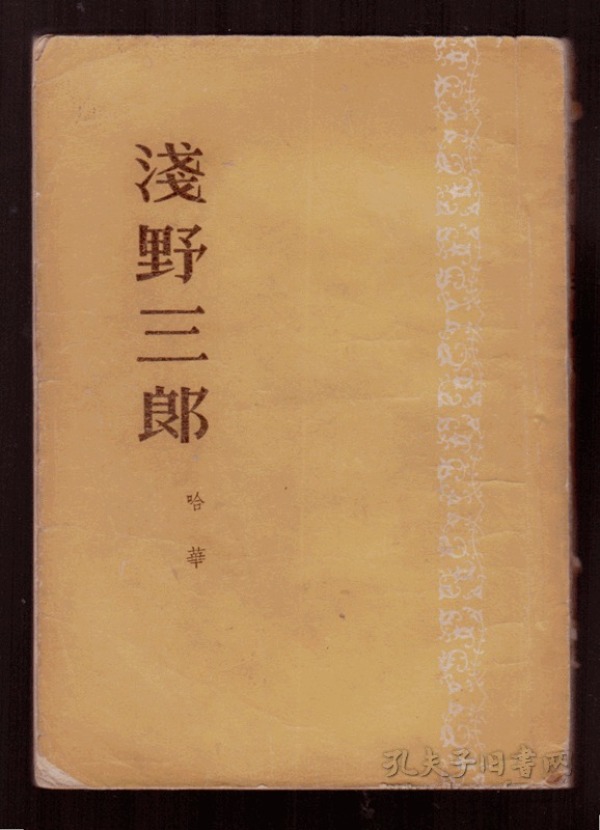 淺野三郎
哈華
孔夫子旧书网